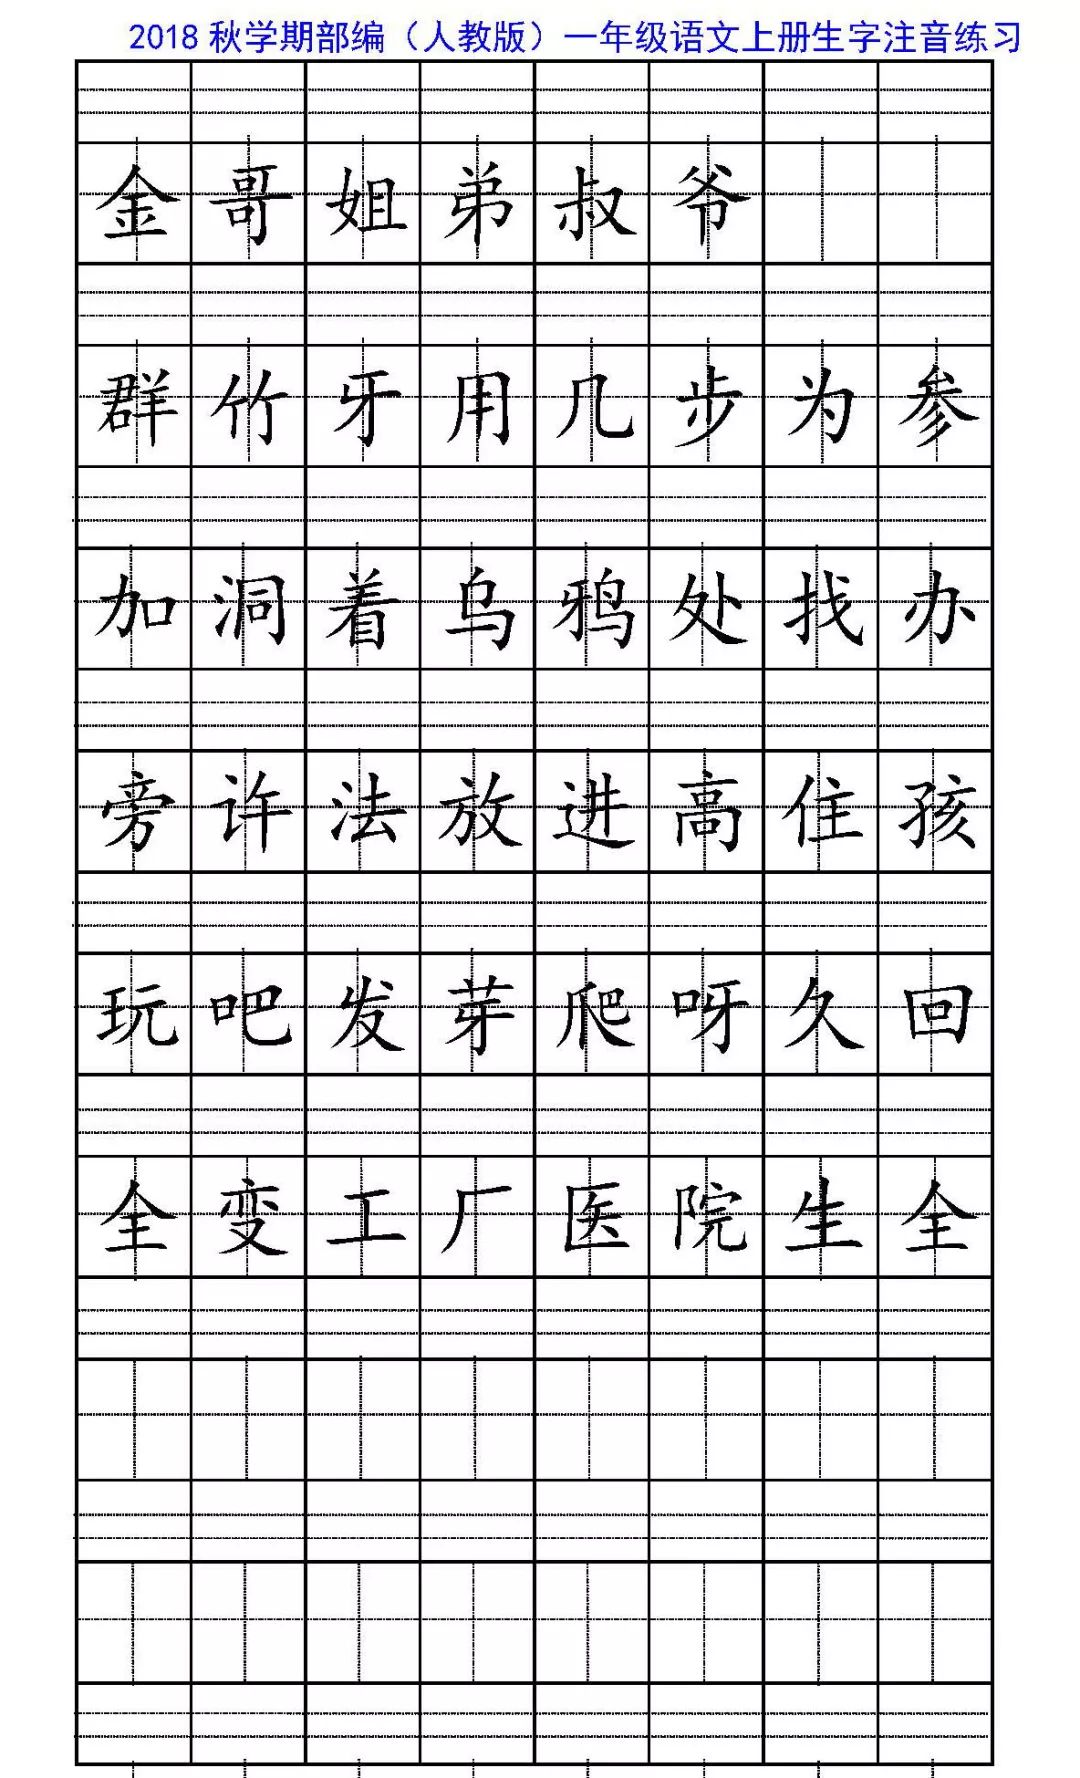 2018 秋学期部编（人教版）一年级语文上册生字注音练习
金哥姐弟叔爷
群竹牙用几步为参
加洞着乌鸦处找办
旁许法放进高住孩
玩吧发芽爬呀久回
全变工厂医院生全